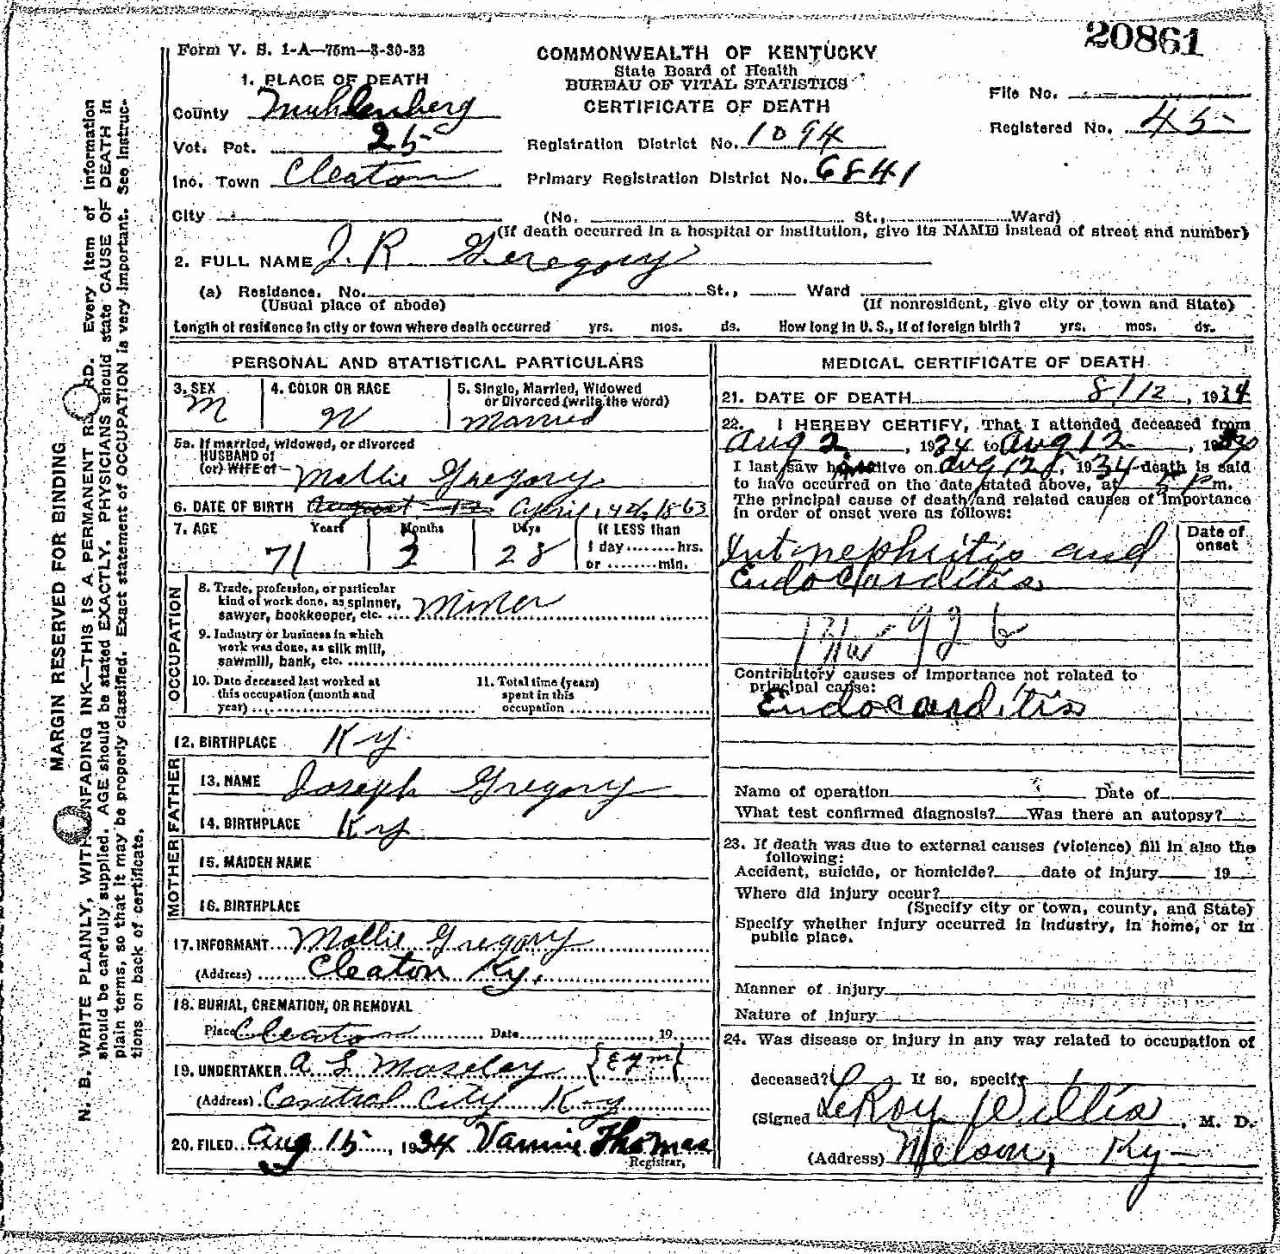 20861
Form V. S. 1-A—75m—3-30-33
COMMONWEALTH OF KENTUCKY
State Board of Health
BUREAU OF VITAL STATISTICS
CERTIFICATE OF DEATH
File No.
Registered No. 45
1. PLACE OF DEATH
County Muhlenberg
Vot. Pct. 25
Registration District No. 1094
Inc. Town Cleaton
Primary Registration District No. 6841
City (No. St., Ward)
(If death occurred in a hospital or institution, give its NAME instead of street and number)
2. FULL NAME J. R. Gregory
(a) Residence. No. St., Ward
(Usual place of abode) (If nonresident, give city or town and State)
Length of residence in city or town where death occurred yrs. mos. ds. How long in U. S., if of foreign birth? yrs. mos. ds.
PERSONAL AND STATISTICAL PARTICULARS
3. SEX M
4. COLOR OR RACE W
5. Single, Married, Widowed
or Divorced (write the word)
Married
5a. If married, widowed, or divorced
HUSBAND of
(or) WIFE of Mollie Gregory
6. DATE OF BIRTH April, 4th, 1863
7. AGE Years Months Days If LESS than
71 3 28 1 day ........hrs.
or ........min.
OCCUPATION
8. Trade, profession, or particular
kind of work done, as spinner,
sawyer, bookkeeper, etc. Miner
9. Industry or business in which
work was done, as silk mill,
sawmill, bank, etc.
10. Date deceased last worked at
this occupation (month and
year)
11. Total time (years)
spent in this
occupation
12. BIRTHPLACE Ky.
FATHER
13. NAME Joseph Gregory
14. BIRTHPLACE Ky
MOTHER
15. MAIDEN NAME
16. BIRTHPLACE
17. INFORMANT Mollie Gregory
(Address) Cleaton Ky.
18. BURIAL, CREMATION, OR REMOVAL
Place Cleaton Date 19
19. UNDERTAKER A. L. Moseley
(Address) Central City Ky
20. FILED Aug 15, 1934 Vannie Thomas
Registrar.
MEDICAL CERTIFICATE OF DEATH
21. DATE OF DEATH 8/12, 1934
22. I HEREBY CERTIFY, That I attended deceased from
Aug 2, 1934 to Aug 12, 19
I last saw h alive on Aug 12, 1934 death is said
to have occurred on the date stated above, at 5 P m.
The principal cause of death and related causes of importance
in order of onset were as follows:
Date of
onset
Int nephritis and
Endocarditis
92 b
Contributory causes of importance not related to
principal cause:
Endocarditis
Name of operation Date of
What test confirmed diagnosis? Was there an autopsy?
23. If death was due to external causes (violence) fill in also the
following:
Accident, suicide, or homicide? date of injury 19
Where did injury occur?
(Specify city or town, county, and State)
Specify whether injury occurred in industry, in home, or in
public place.
Manner of injury
Nature of injury
24. Was disease or injury in any way related to occupation of
deceased? If so, specify
(Signed LeRoy Willis, M. D.
(Address) Nelson, Ky
MARGIN RESERVED FOR BINDING
N. B. WRITE PLAINLY, WITH UNFADING INK—THIS IS A PERMANENT RECORD. Every item of information
should be carefully supplied. AGE should be stated EXACTLY. PHYSICIANS should state CAUSE OF DEATH in
plain terms, so that it may be properly classified. Exact statement of OCCUPATION is very important. See Instruc-
tions on back of certificate.